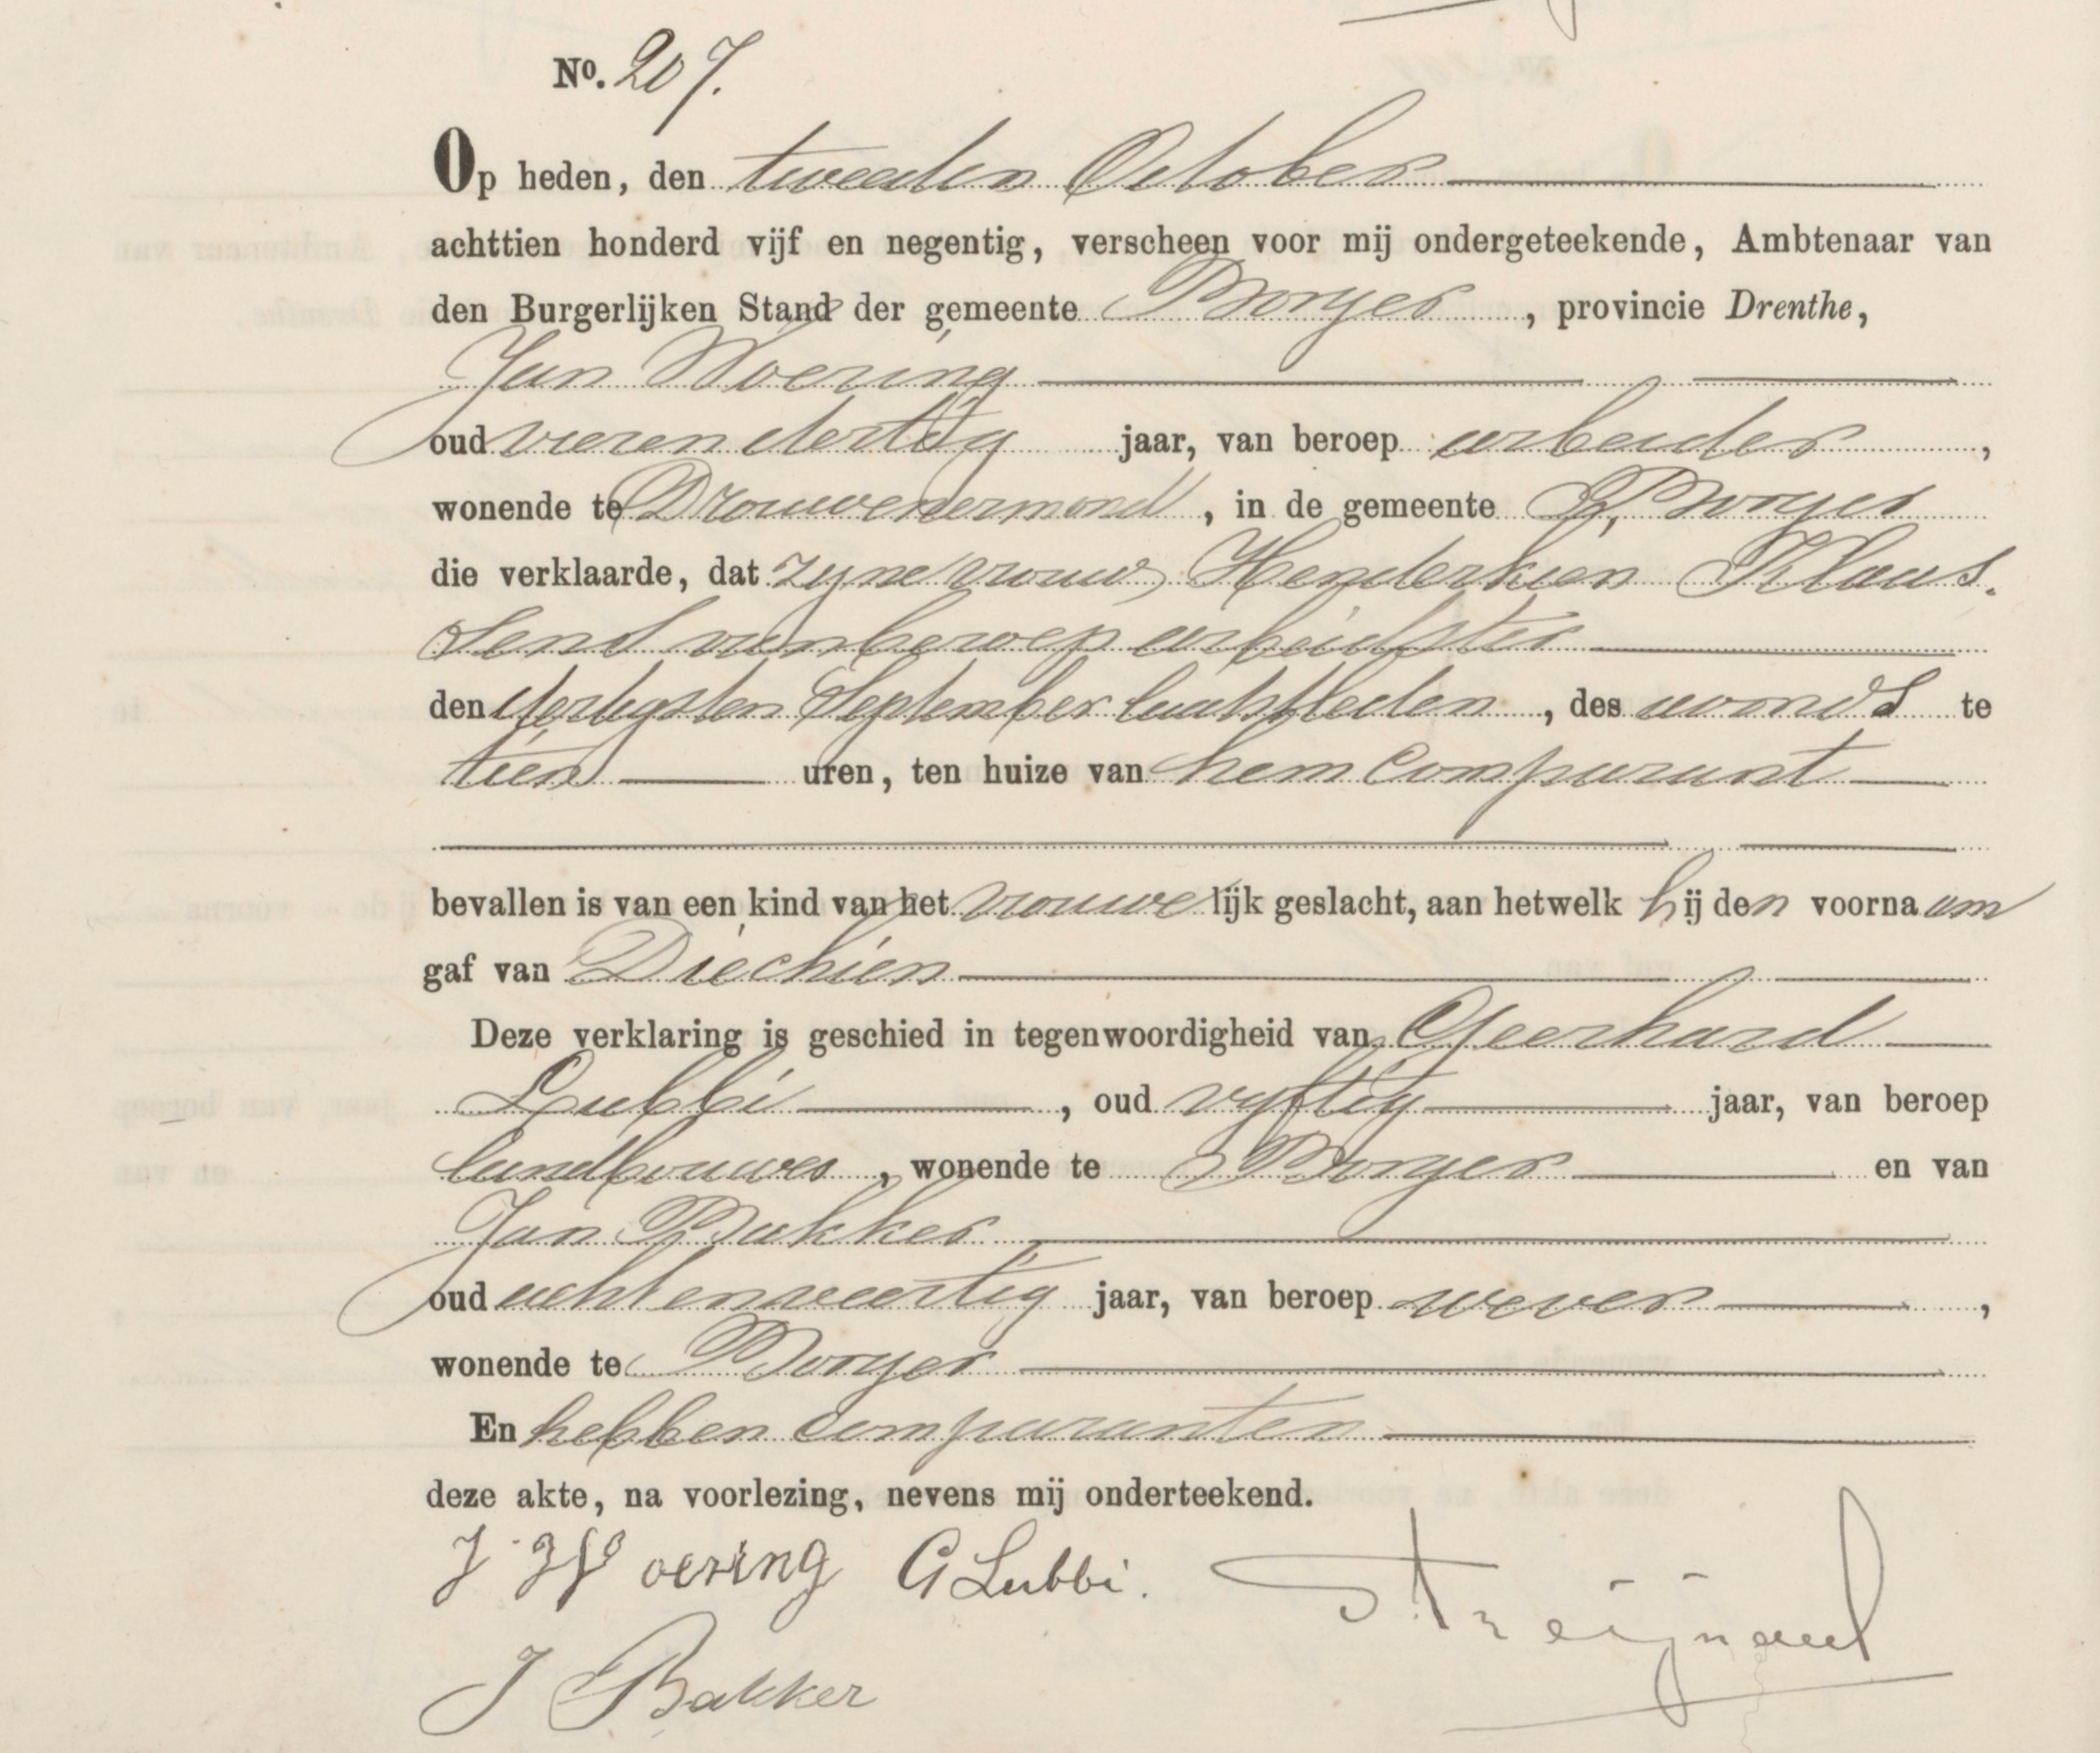 No. 207.
Op heden, den tweeden October
achttien honderd vijf en negentig, verscheen voor mij ondergeteekende, Ambtenaar van
den Burgerlijken Stand der gemeente Borger, provincie Drenthe,
Jan Woering
oud vierendertig jaar, van beroep arbeider,
wonende te Drouwenermond, in de gemeente Borger
die verklaarde, dat zyne vrouw Henderkien Klaas.
Send van beroep arbeidster
den dertigsten September laatstleden, des avonds te
tien uren, ten huize van hem comparant
bevallen is van een kind van het vrouwelijk geslacht, aan hetwelk hij den voornaam
gaf van Diechien
Deze verklaring is geschied in tegenwoordigheid van Geerhard
Lubbi, oud vyftig jaar, van beroep
landbouwer, wonende te Borger en van
Jan Bakker
oud achtenveertig jaar, van beroep wever,
wonende te Borger
En hebben comparanten
deze akte, na voorlezing, nevens mij onderteekend.
J W oering G Lubbi.
J Bakker